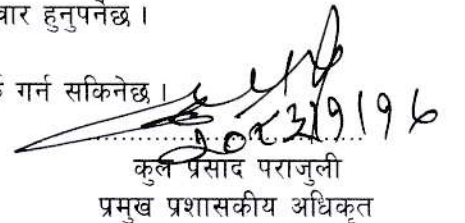 वार हुनुपर्नेछ ।
गर्न सकिनेछ ।
२०८३/१/१६
कुल प्रसाद पराजुली
प्रमुख प्रशासकीय अधिकृत